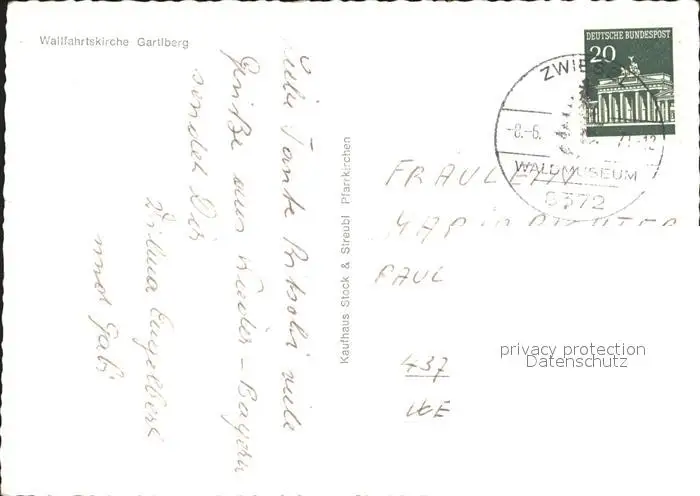 Wallfahrtskirche Gartlberg
Liebe Tante viele
Grüße aus Nieder-Bayern
sendet Dir
und Gabi
Kaufhaus Stock & Streubl Pfarrkirchen
DEUTSCHE BUNDESPOST
20
ZWIESEL
-8.-6.
-12
WALDMUSEUM
8372
FRÄULEIN
PAUL
437
privacy protection
Datenschutz